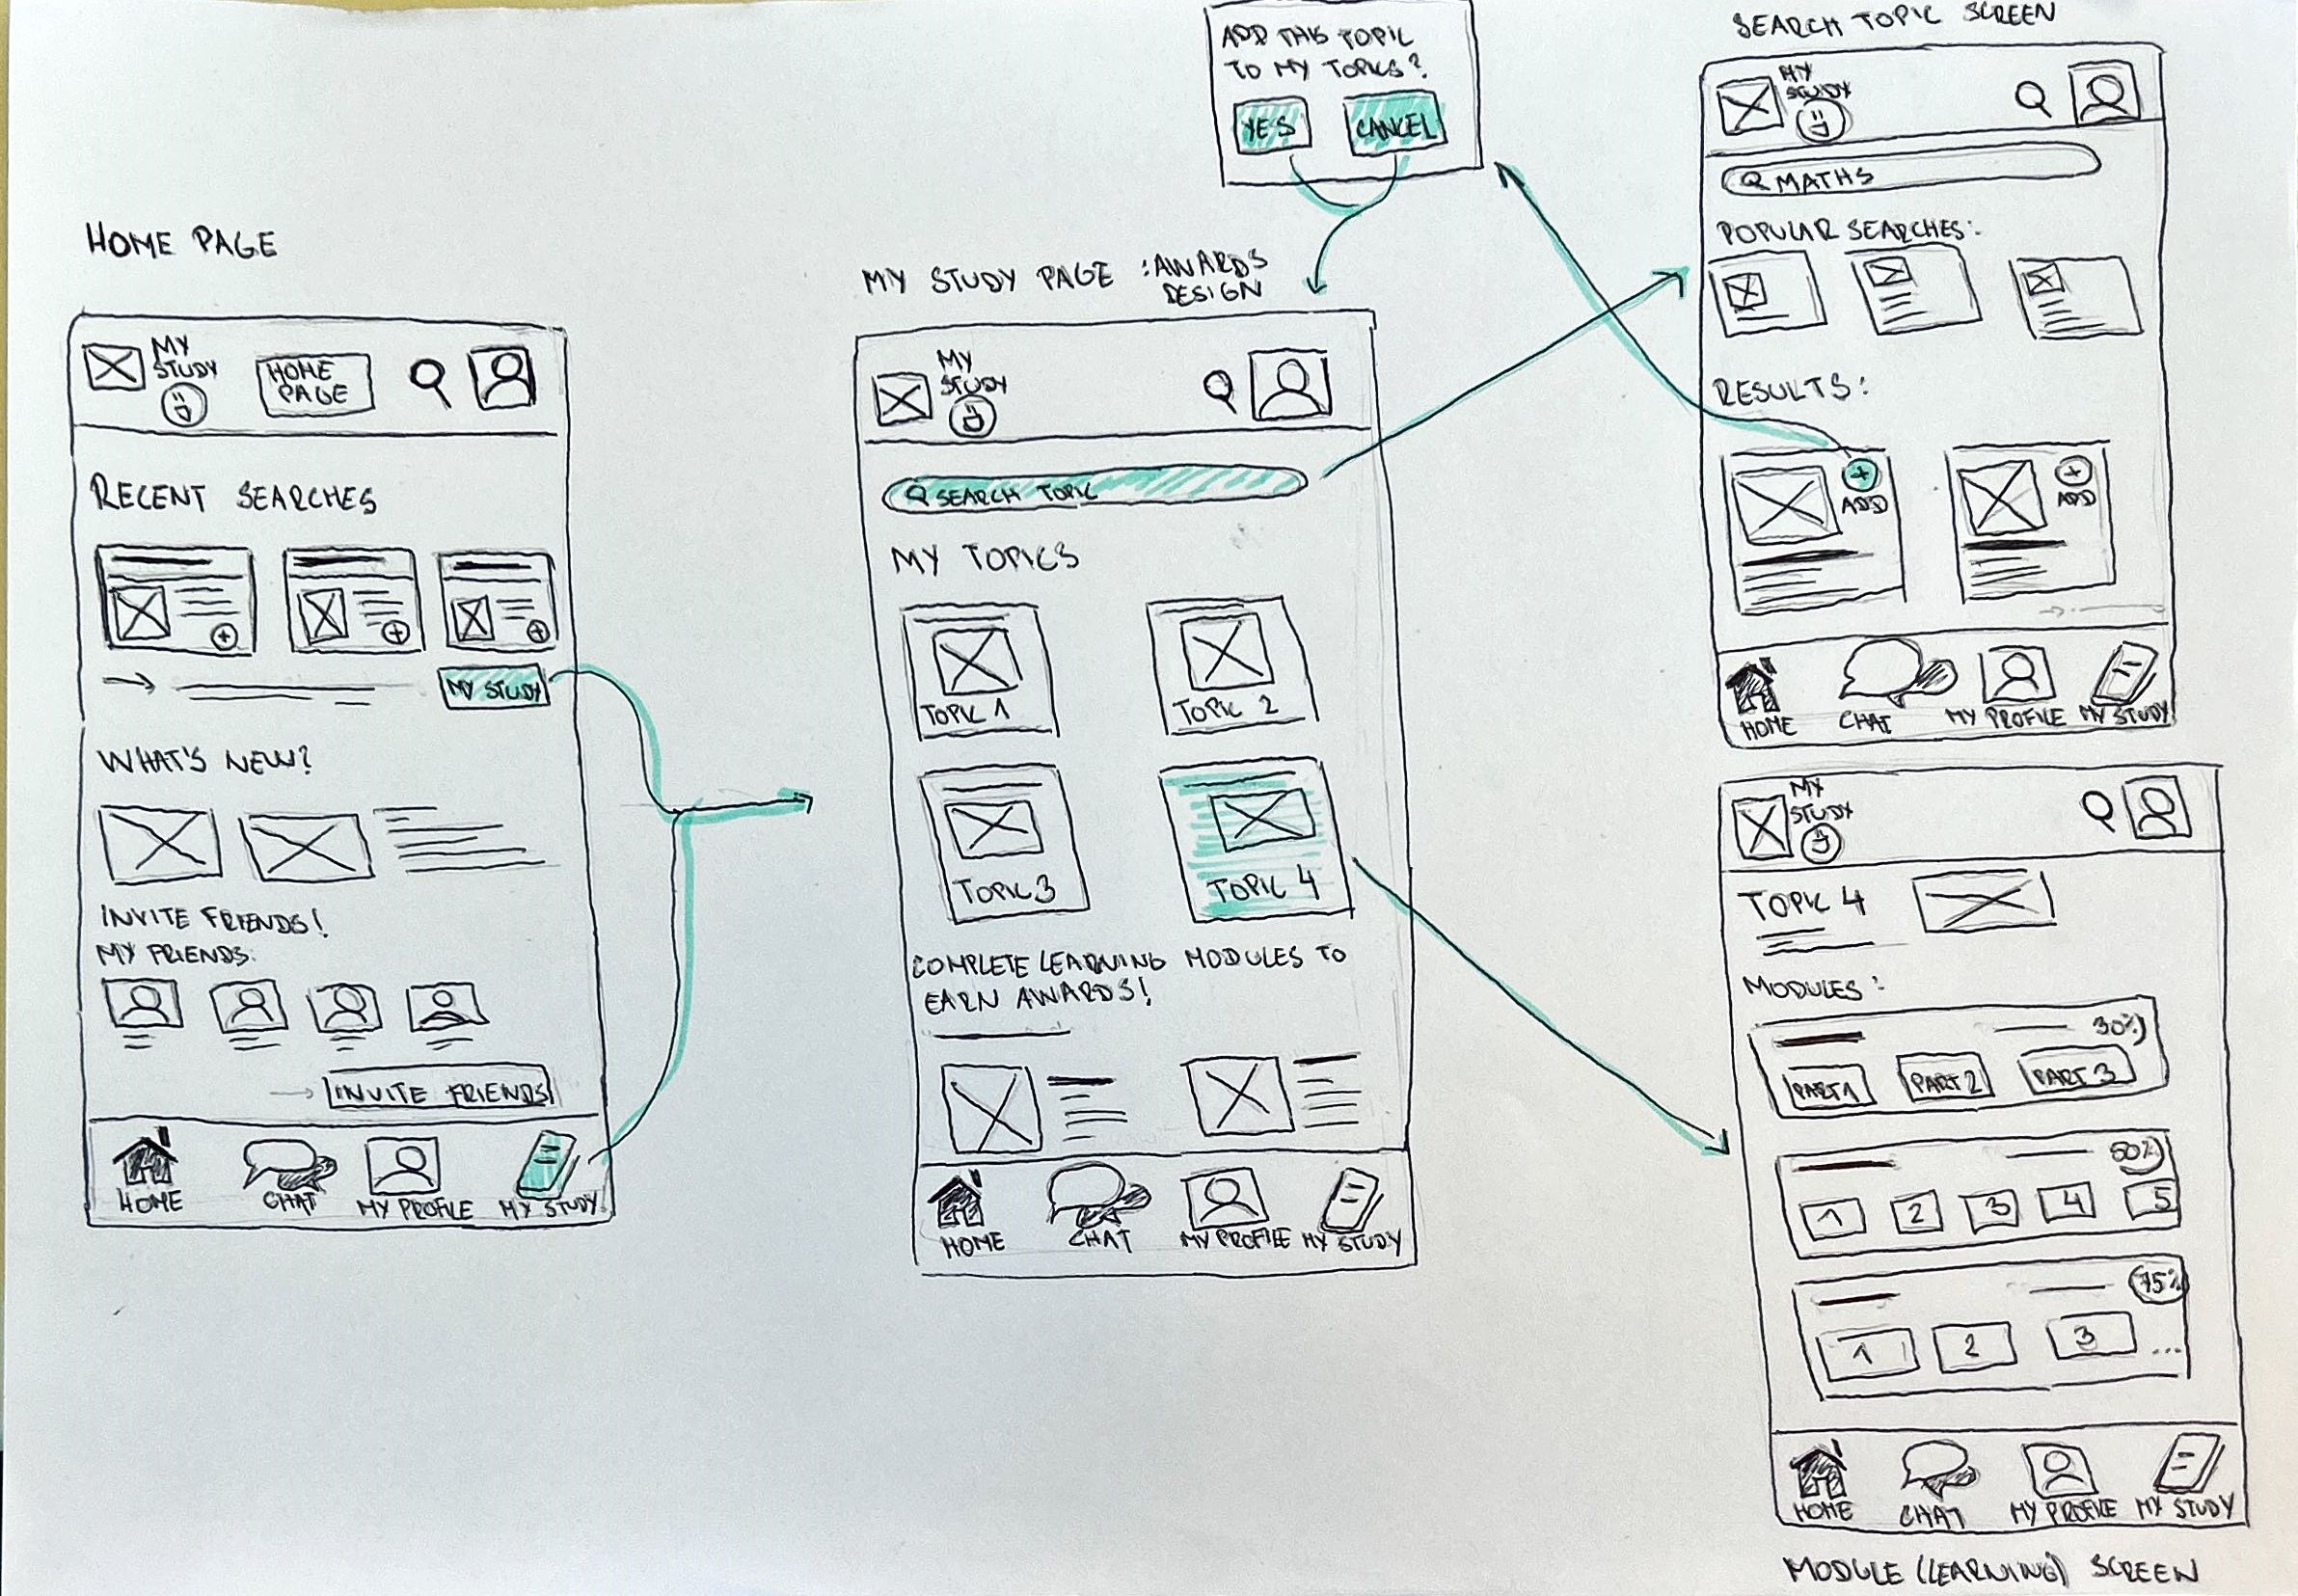 HOME PAGE
MY
STUDY
HOME
PAGE
RECENT SEARCHES
MY STUDY
WHAT'S NEW?
INVITE FRIENDS!
MY FRIENDS:
INVITE FRIENDS!
HOME
CHAT
MY PROFILE
MY STUDY
ADD THIS TOPIC
TO MY TOPICS?
YES
CANCEL
MY STUDY PAGE : AWARDS
DESIGN
MY
STUDY
SEARCH TOPIC
MY TOPICS
TOPIC 1
TOPIC 2
TOPIC 3
TOPIC 4
COMPLETE LEARNING MODULES TO
EARN AWARDS!
HOME
CHAT
MY PROFILE
MY STUDY
SEARCH TOPIC SCREEN
MY
STUDY
MATHS
POPULAR SEARCHES:
RESULTS:
ADD
ADD
HOME
CHAT
MY PROFILE
MY STUDY
MY
STUDY
TOPIC 4
MODULES:
30%
PART 1
PART 2
PART 3
1
2
3
4
5
75%
1
2
3
...
HOME
CHAT
MY PROFILE
MY STUDY
MODULE (LEARNING) SCREEN